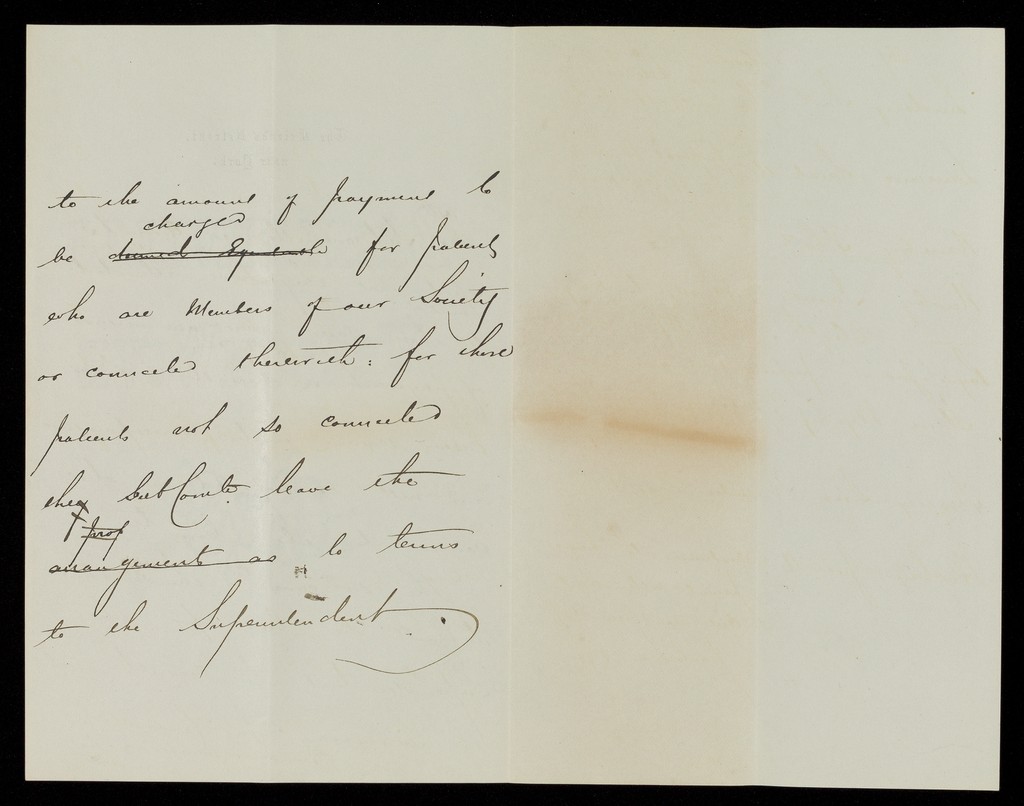 to the amount of payment to
charged
be deemed Equitable for patients
who are Members of our Society
or connected therewith: for those
patients not so connected
the Sub Comte. leave the
prop
arrangements as to terms
to the Superintendent.